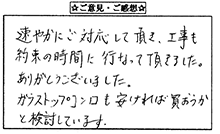 ☆ご意見・ご感想☆
速やかにご対応して頂き、工事も
約束の時間に行なって頂きました。
ありがとうございました。
ガラストップコンロも安ければ買おうか
と検討しています。